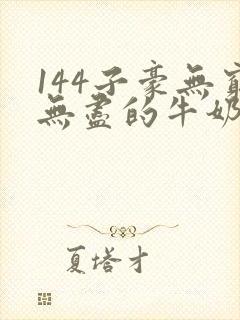 144子豪無窮
無盡的牛奶
夏塔才